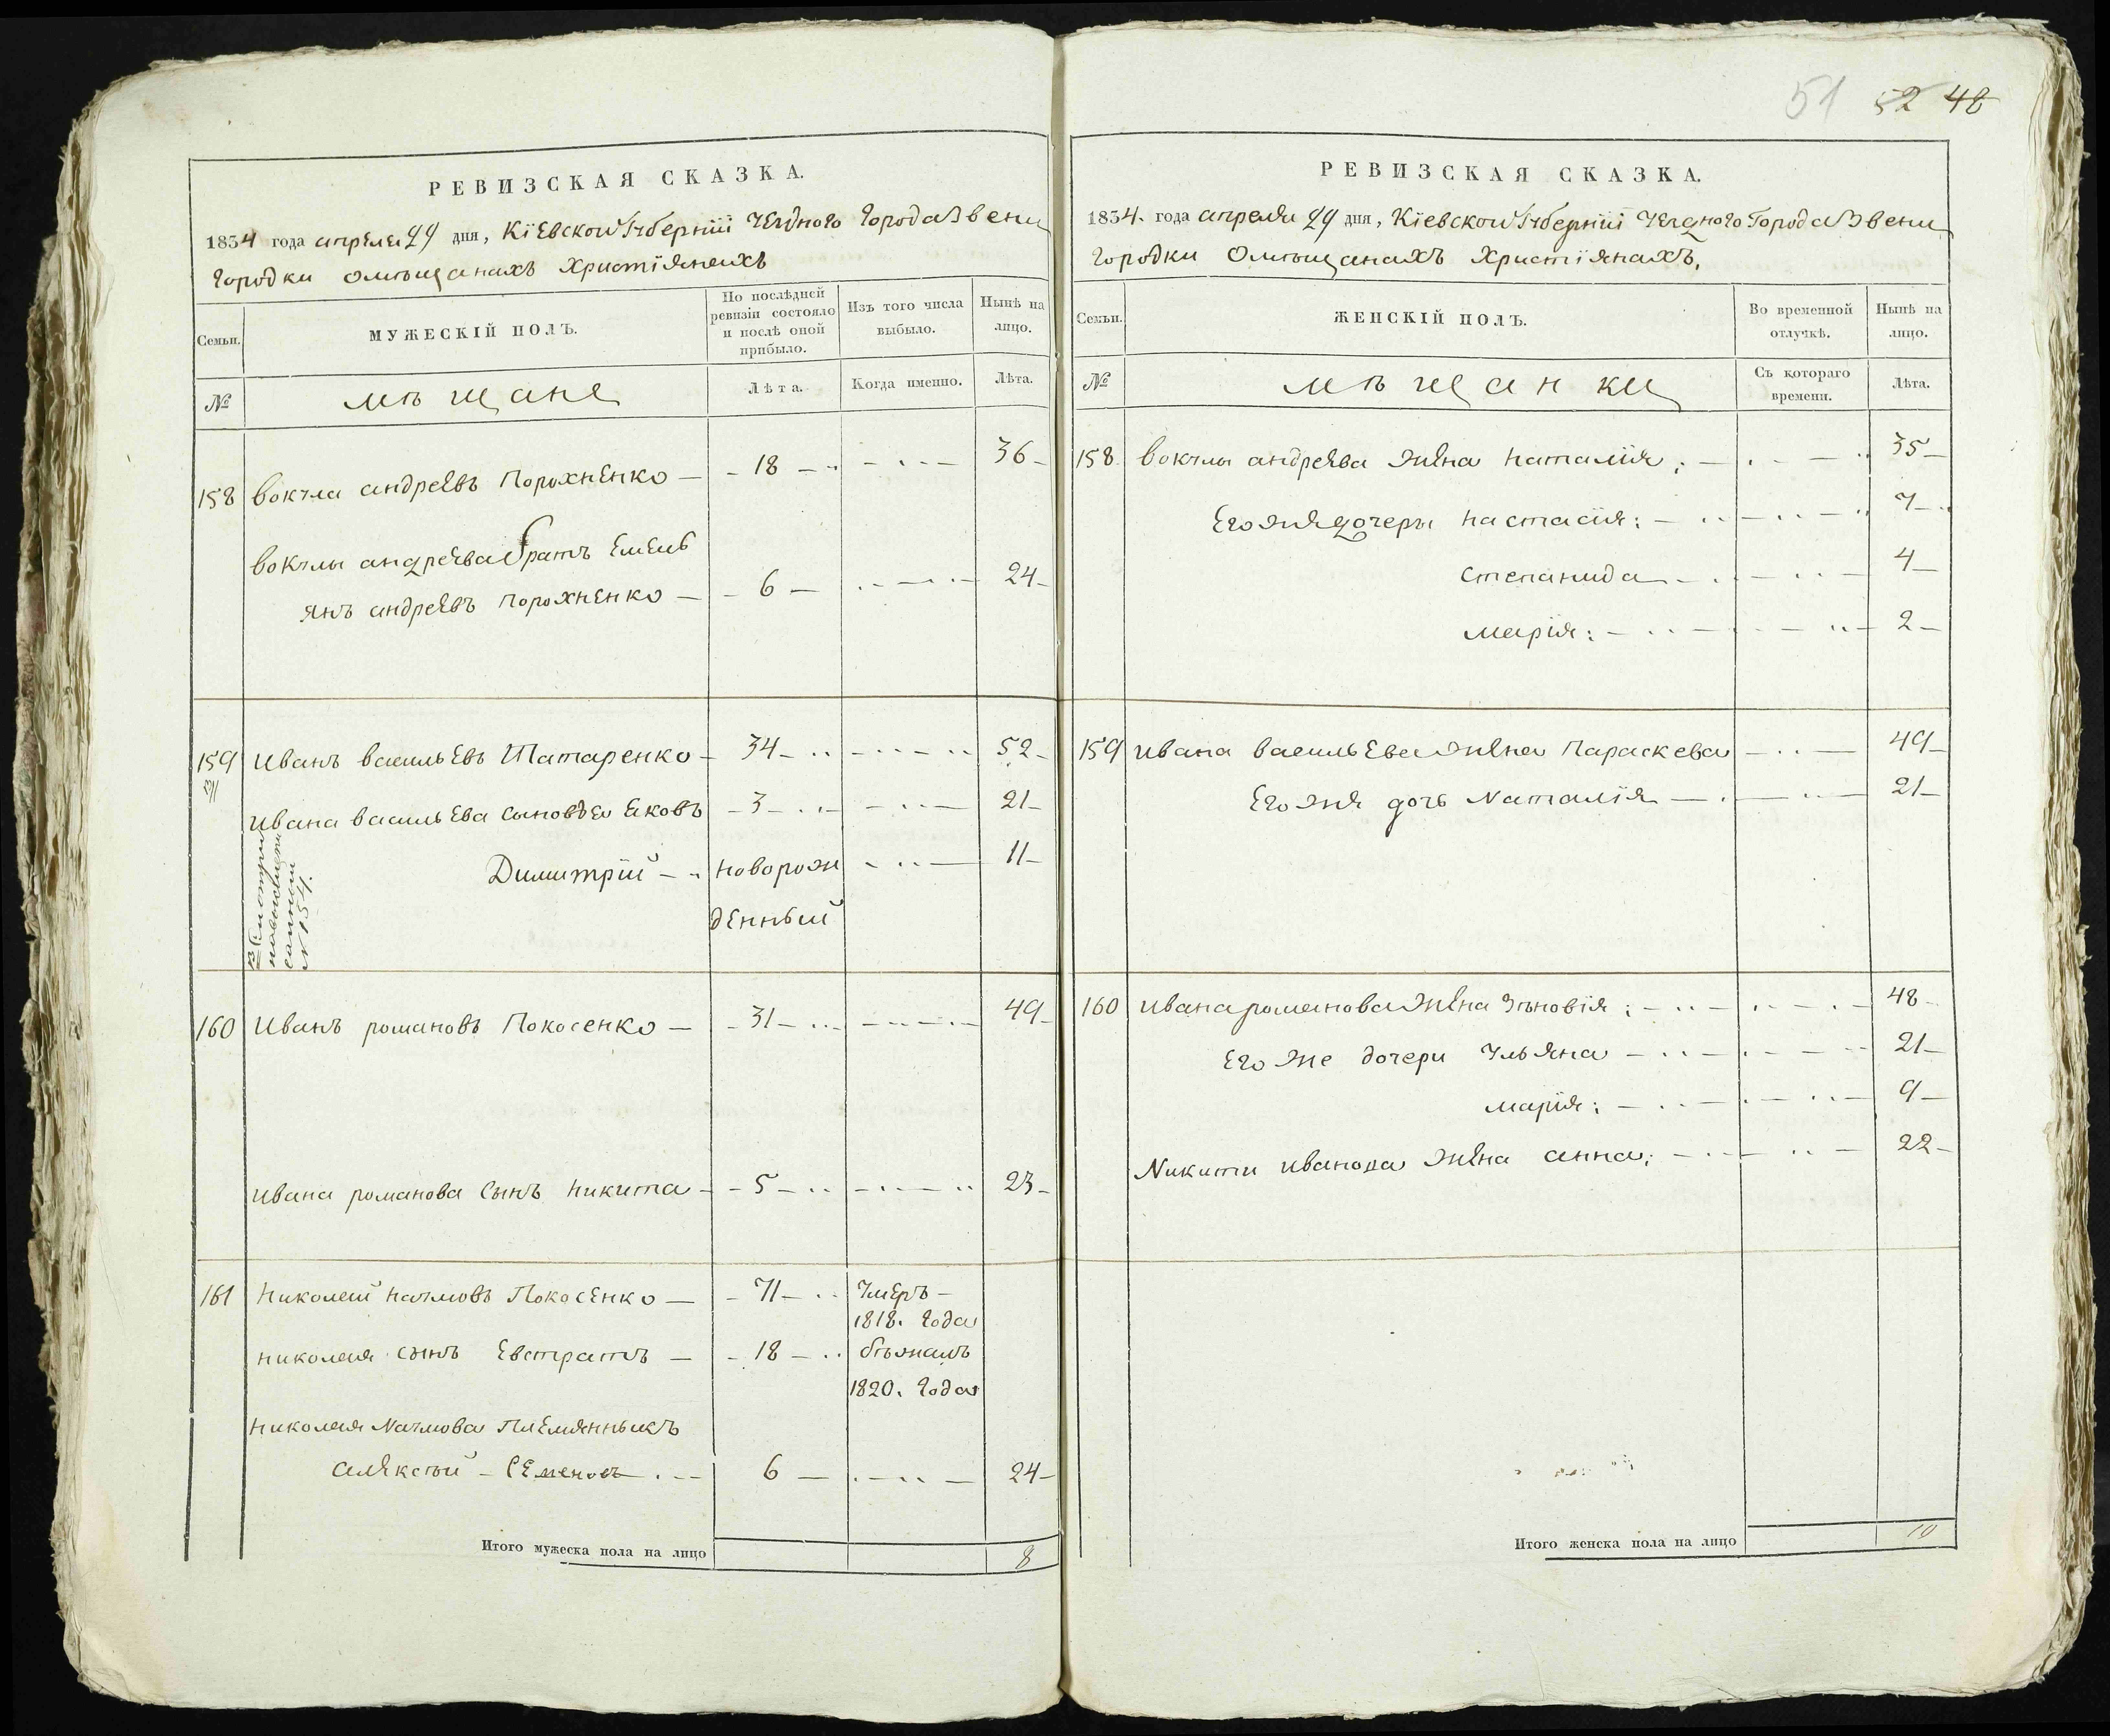 51 52 48
РЕВИЗСКАЯ СКАЗКА.
1834 года апреля 29 дня, Кїевской Губернїи Уезного Города Звени
Городки омѣщанахъ Христїянахъ
Семьи.
МУЖЕСКІЙ ПОЛЪ.
По послѣдней ревизіи состояло и послѣ оной прибыло.
Изъ того числа выбыло.
Нынѣ на лицо.
№
мѣщане
Лѣта.
Когда именно.
Лѣта.
158 вокула андреевъ Порохненко — 18 36
вокулы андреева братъ Емель
янъ андреевъ Порохненко — 6 24
159 Иванъ васильевъ Татаренко 34 52
Ивана васильева сыновьея Яковъ 3 21
Димитрїй новорож 11
денный
№ 154.
160 Иванъ романовъ Покосенко — 31 49
Ивана романова сынъ никита 5 23
161 Николай наумовъ Покосенко — 71 Умеръ —
1818. Года
николая сынъ Евстратъ — 18 бѣжалъ
1820. Года
николая Наумова Племянныкъ
алексѣй — Семеновъ 6 24
Итого мужеска пола на лицо 8
РЕВИЗСКАЯ СКАЗКА.
1834. года апреля 29 дня, Кїевской Губернїи Уезднаго Города Звени
Городки Омѣщанахъ Христїянахъ,
Семьи.
ЖЕНСКІЙ ПОЛЪ.
Во временной отлучкѣ.
Нынѣ на лицо.
№
мѣщанки
Съ котораго времени.
Лѣта.
158 вокулы андреева жена наталїя; 35
Его жя дочеры настасїя: 7
степанида 4
марїя: 2
159 Ивана васильева жена Параскева 49
Его жя дочь Наталїя 21
160 Ивана романова жена Зѣновїя; 48
Его же дочери Ульяна 21
марїя: 9
Никити Иванова жена анна; 22
Итого женска пола на лицо 10